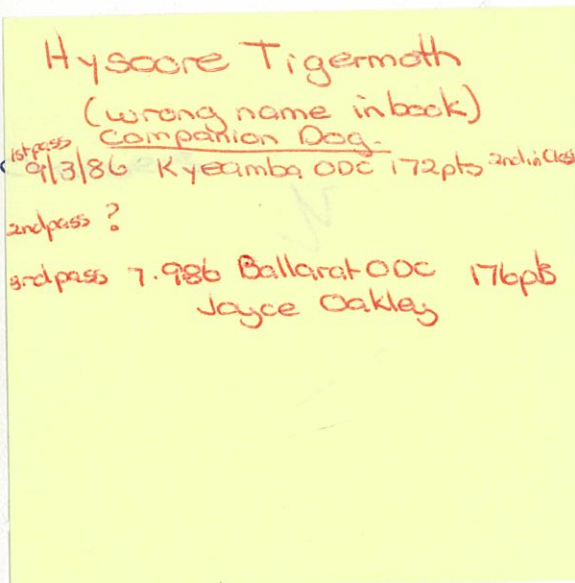 Hyscore Tigermoth
(wrong name in book)
Companion Dog.
1st pass
9/3/86 Kyeamba ODC 172pts 2nd in Class
2nd pass ?
3rd pass 7.986 Ballarat ODC 176pts
Joyce Oakley